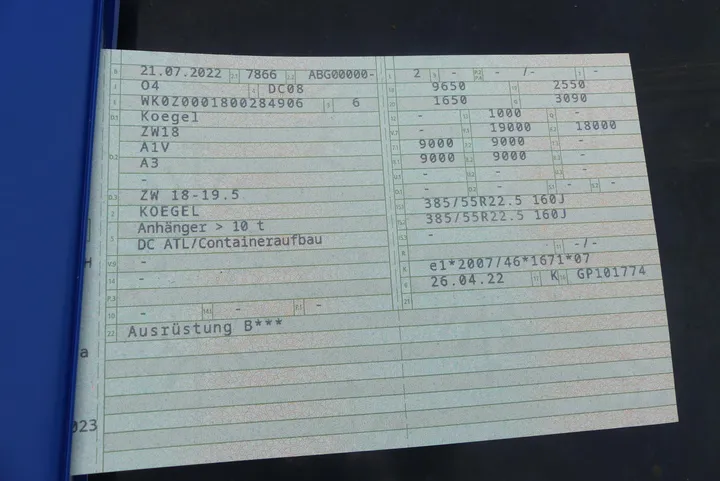 21.07.2022 7866 ABG00000-
04 DC08
WK0Z0001800284906 6
Koegel
ZW18
A1V
A3
-
ZW 18-19.5
KOEGEL
Anhänger > 10 t
DC ATL/Containeraufbau
-
-
- - -
Ausrüstung B***
2 - - /- -
9650 2550
1650 3090
- 1000 -
- 19000 18000
9000 9000 -
9000 9000 -
- - -
- - - -
385/55R22.5 160J
385/55R22.5 160J
-
-/-
e1*2007/46*1671*07
26.04.22 K GP101774
H
a
023